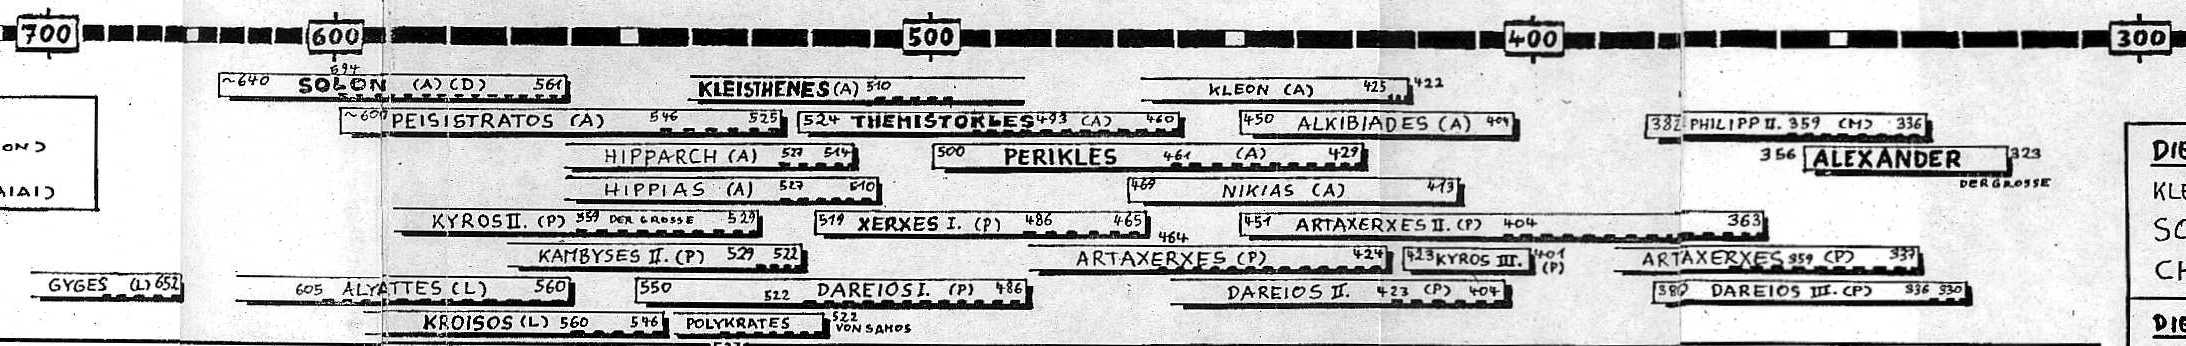 700 600 500 400 300
~640 594 SOLON (A) (D) 561 KLEISTHENES (A) 510 KLEON (A) 425 422
~600 PEISISTRATOS (A) 546 525 524 THEMISTOKLES 493 (A) 460 450 ALKIBIADES (A) 404 382 PHILIPP II. 359 (M) 336
HIPPARCH (A) 527 514 500 PERIKLES 461 (A) 429 356 ALEXANDER 323
DER GROSSE
HIPPIAS (A) 527 510 469 NIKIAS (A) 413
KYROS II. (P) 559 DER GROSSE 529 519 XERXES I. (P) 486 465 451 ARTAXERXES II. (P) 404 363
KAMBYSES II. (P) 529 522 464 ARTAXERXES (P) 424 423 KYROS III. 401 (P) ARTAXERXES 359 (P) 337
GYGES (L) 652 605 ALYATTES (L) 560 550 522 DAREIOS I. (P) 486 DAREIOS II. 423 (P) 404 380 DAREIOS III. (P) 336 330
KROISOS (L) 560 546 POLYKRATES 522 VON SAMOS
ON)
AIAI)
DIE
KLE
SO
CH
DIE